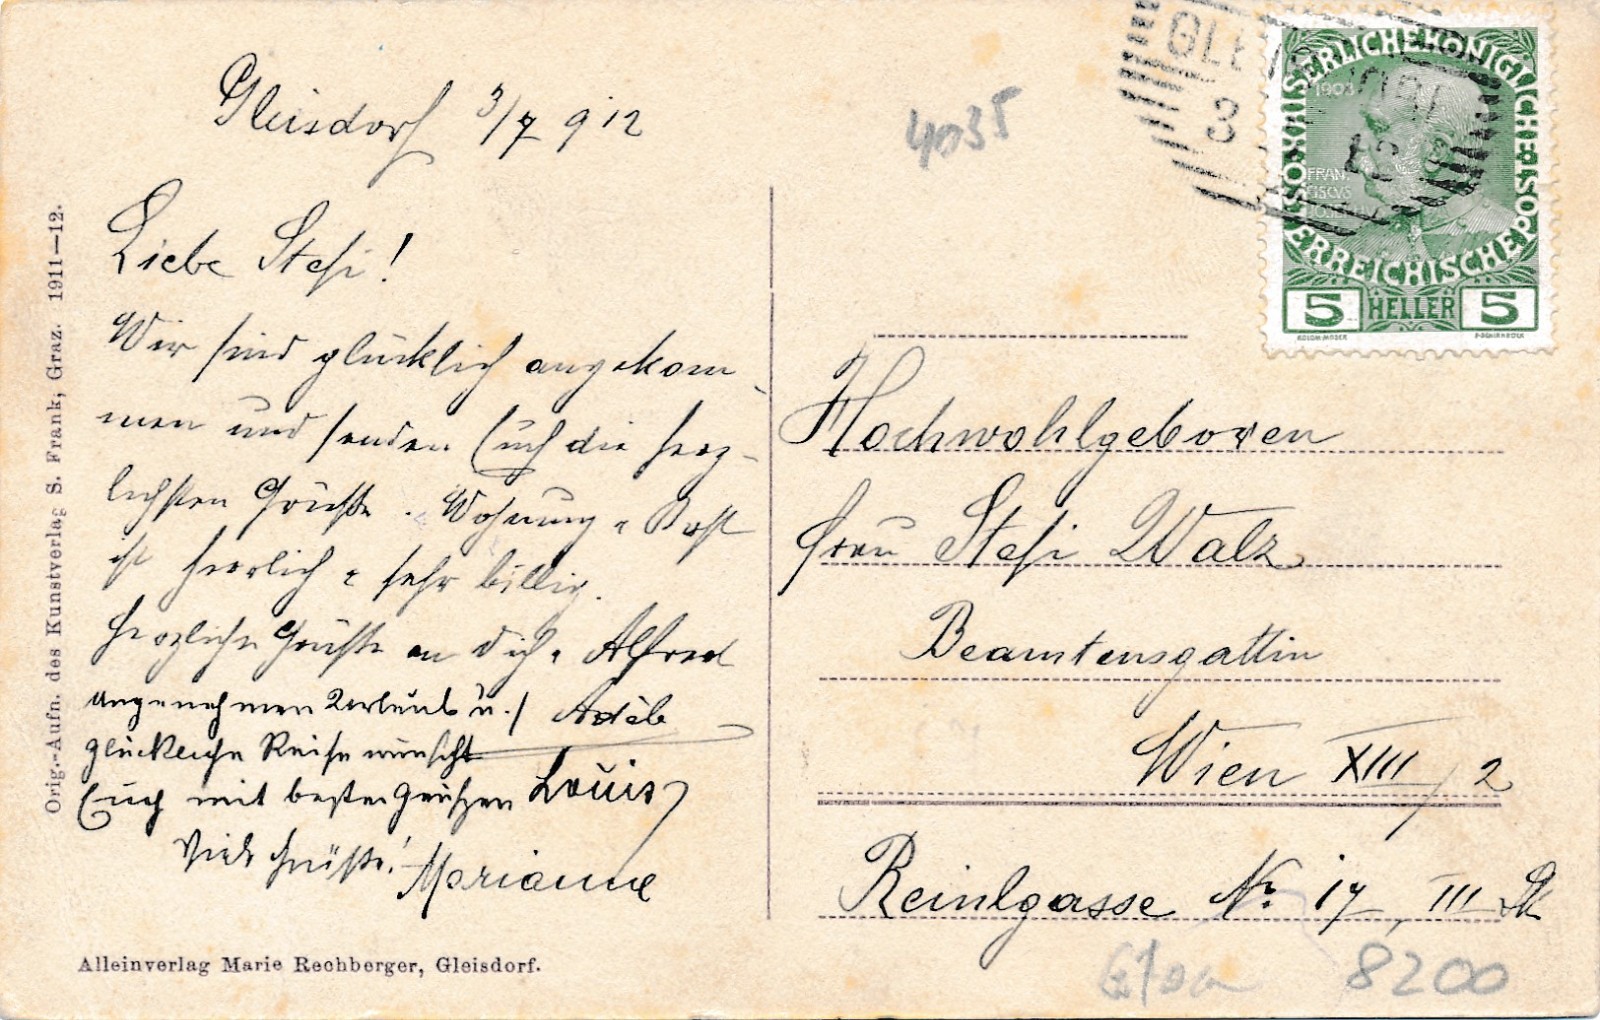 Gleisdorf 3/7 912
Liebe Stefi!
Wir sind glücklich angekom-
men und senden Euch die herz-
lichsten Grüße. Wohnung u Kost
ist herrlich u sehr billig.
Herzliche Grüße an Dich u Alfred
Adèle
angenehmen Urlaub u.
glückliche Reise wünscht
Euch mit besten Grüßen Louis
Viele Grüße! Marianne
Alleinverlag Marie Rechberger, Gleisdorf.
Orig.-Aufn. des Kunstverlag S. Frank, Graz. 1911—12.
4035
KAISERLICHE KÖNIGLICHE ÖSTERREICHISCHE POST
1908
FRAN
CISCVS
JOSEF
5 HELLER 5
Hochwohlgeboren
Frau Stefi Walz
Beamtensgattin
Wien XIII/2
Reinlgasse Nr. 17, III
8200